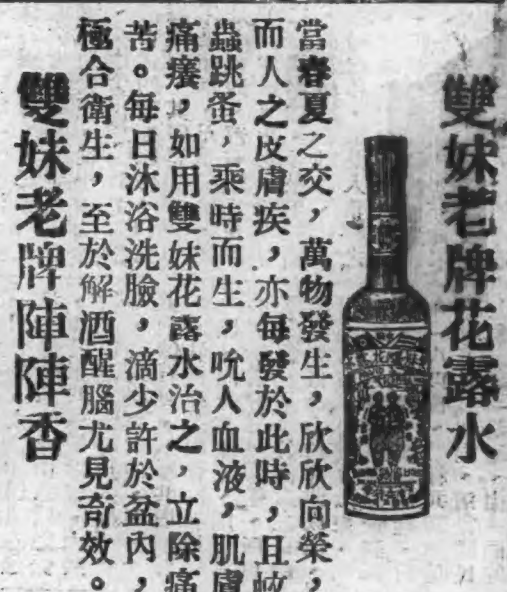 雙妹老牌花露水
當春夏之交，萬物發生，欣欣向榮，
而人之皮膚疾，亦每發於此時，且蚊
蟲跳蚤，乘時而生，吮人血液，肌膚
痛癢，如用雙妹花露水治之，立除痛
苦。每日沐浴洗臉，滴少許於盆內，
極合衛生，至於解酒醒腦尤見奇效。
雙妹老牌陣陣香